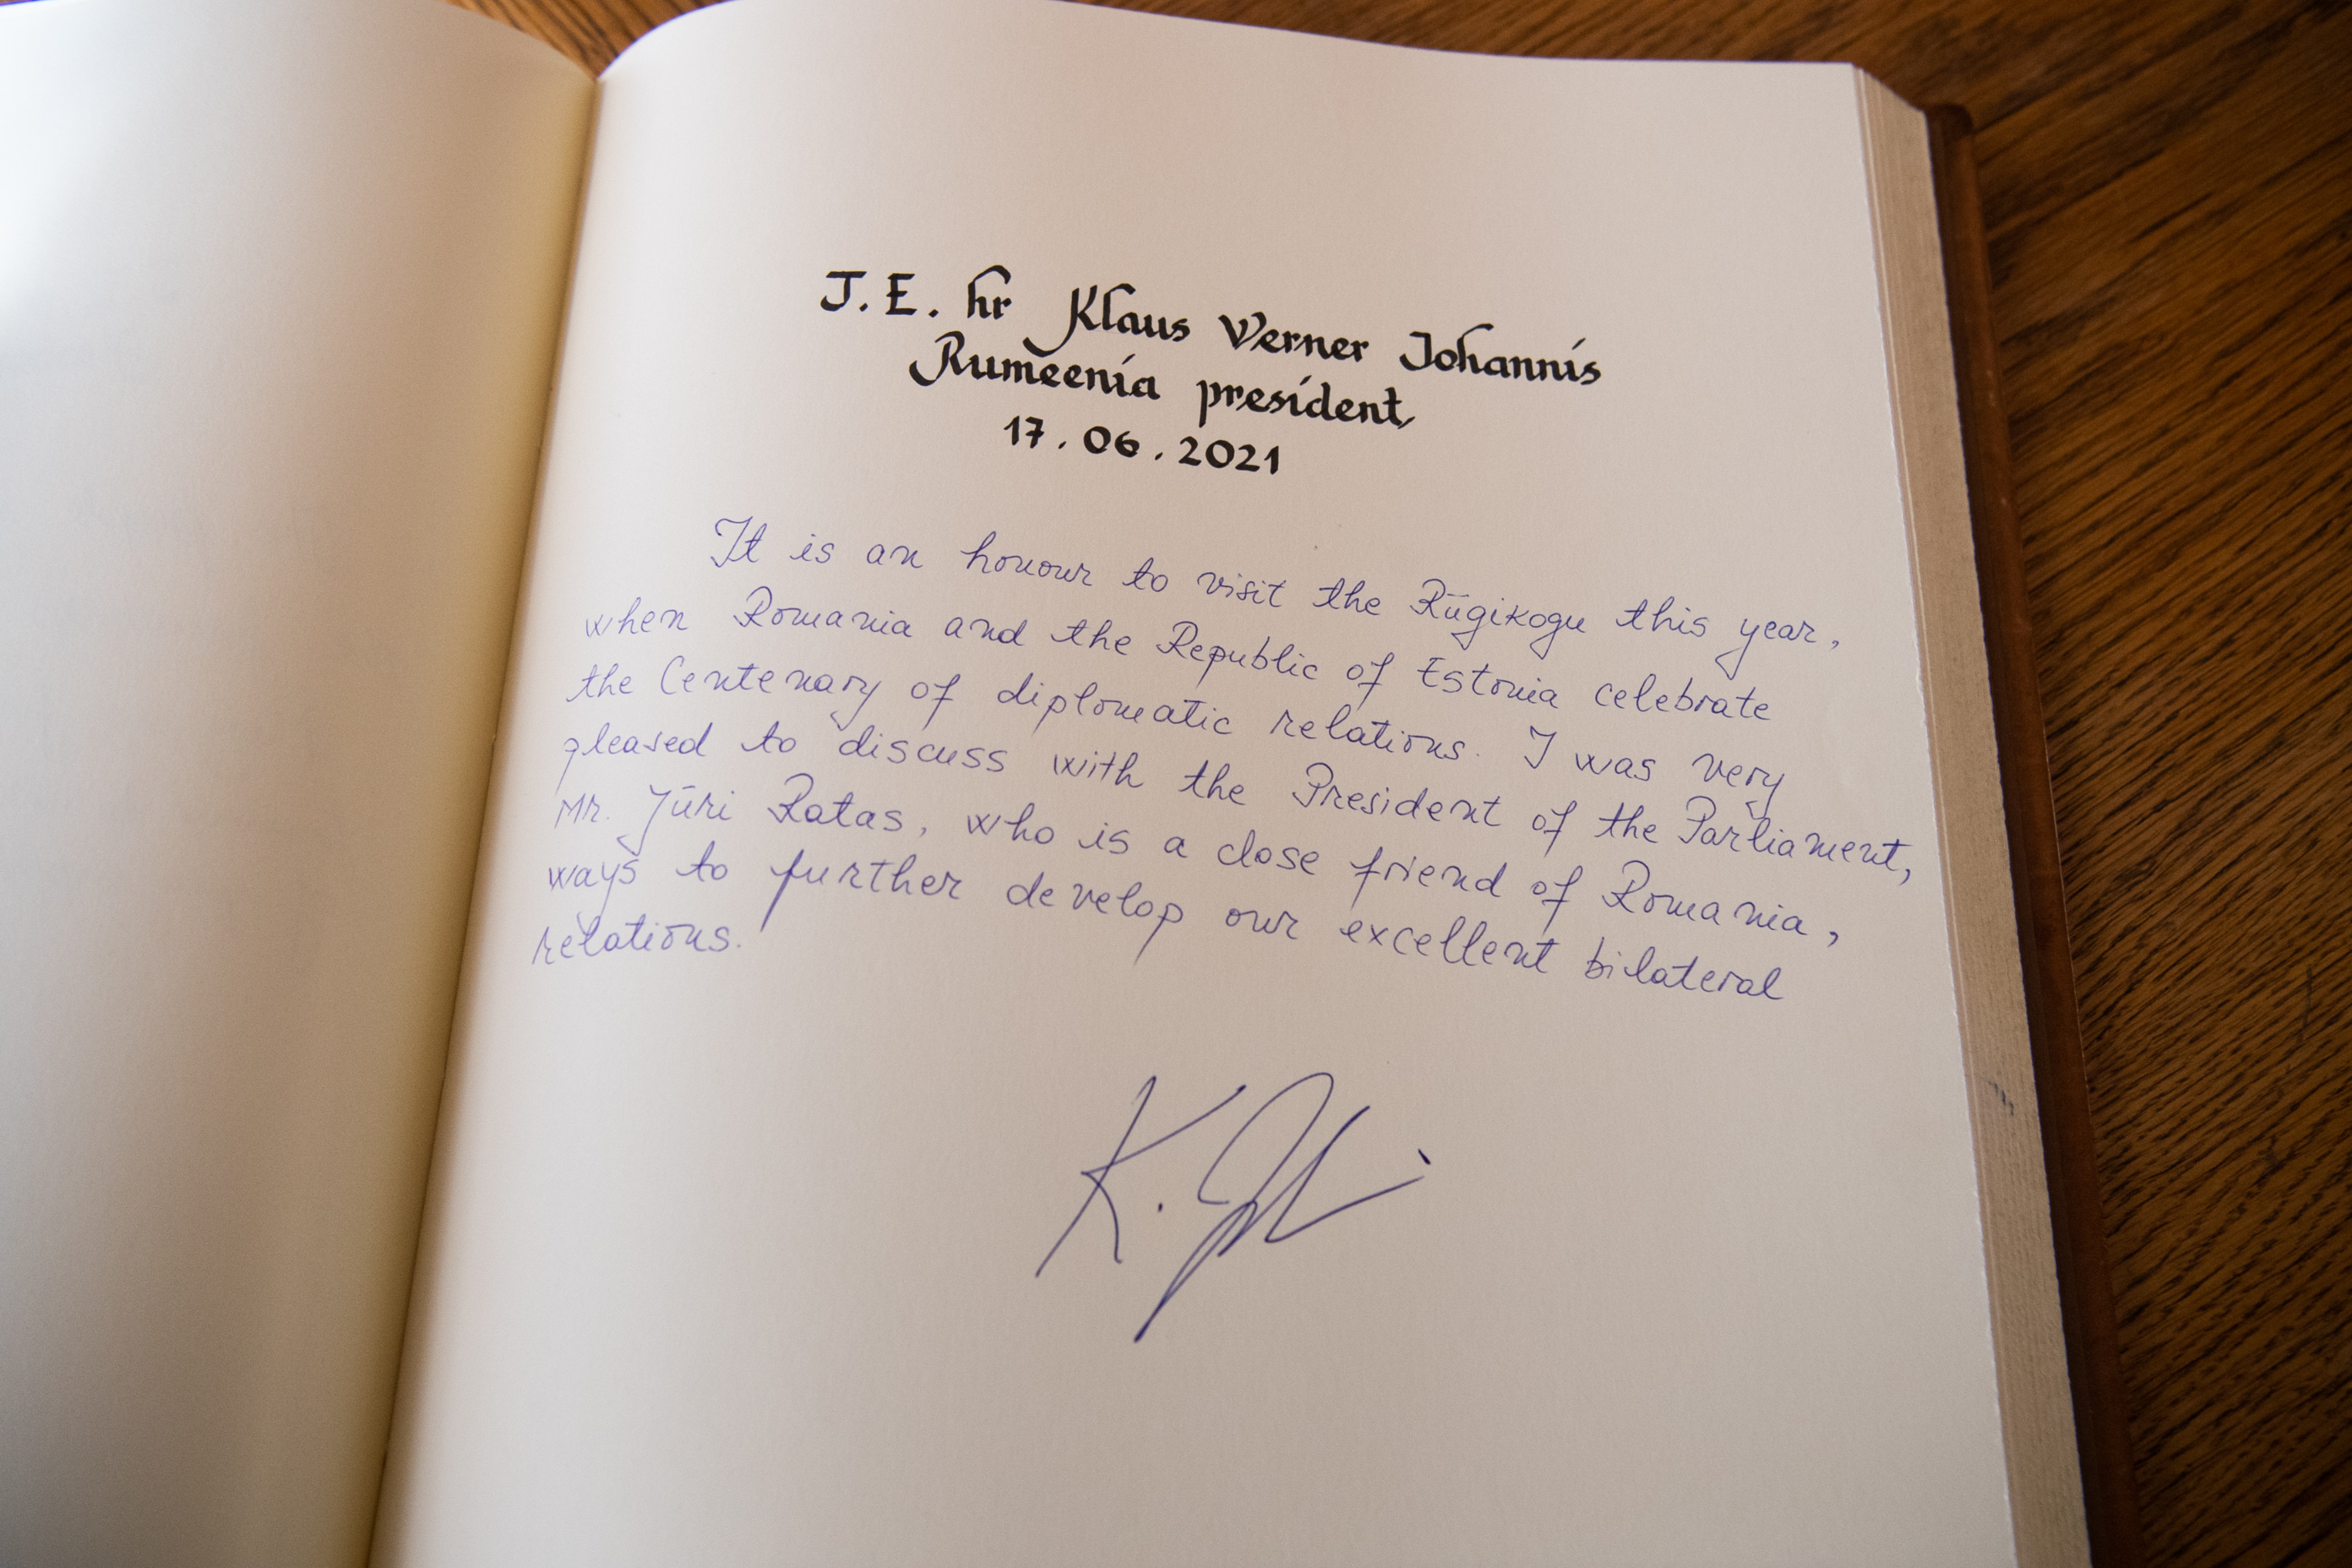 J. E. hr Klaus Werner Johannis
Rumeenia president,
17.06.2021
It is an honour to visit the Riigikogu this year,
when Romania and the Republic of Estonia celebrate
the Centenary of diplomatic relations. I was very
pleased to discuss with the President of the Parliament,
Mr. Jüri Ratas, who is a close friend of Romania,
ways to further develop our excellent bilateral
relations.
K.